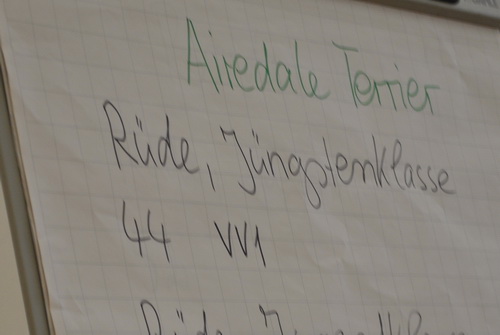 Airedale Terrier
Rüde, Jüngstenklasse
44 VV1
Rüde,